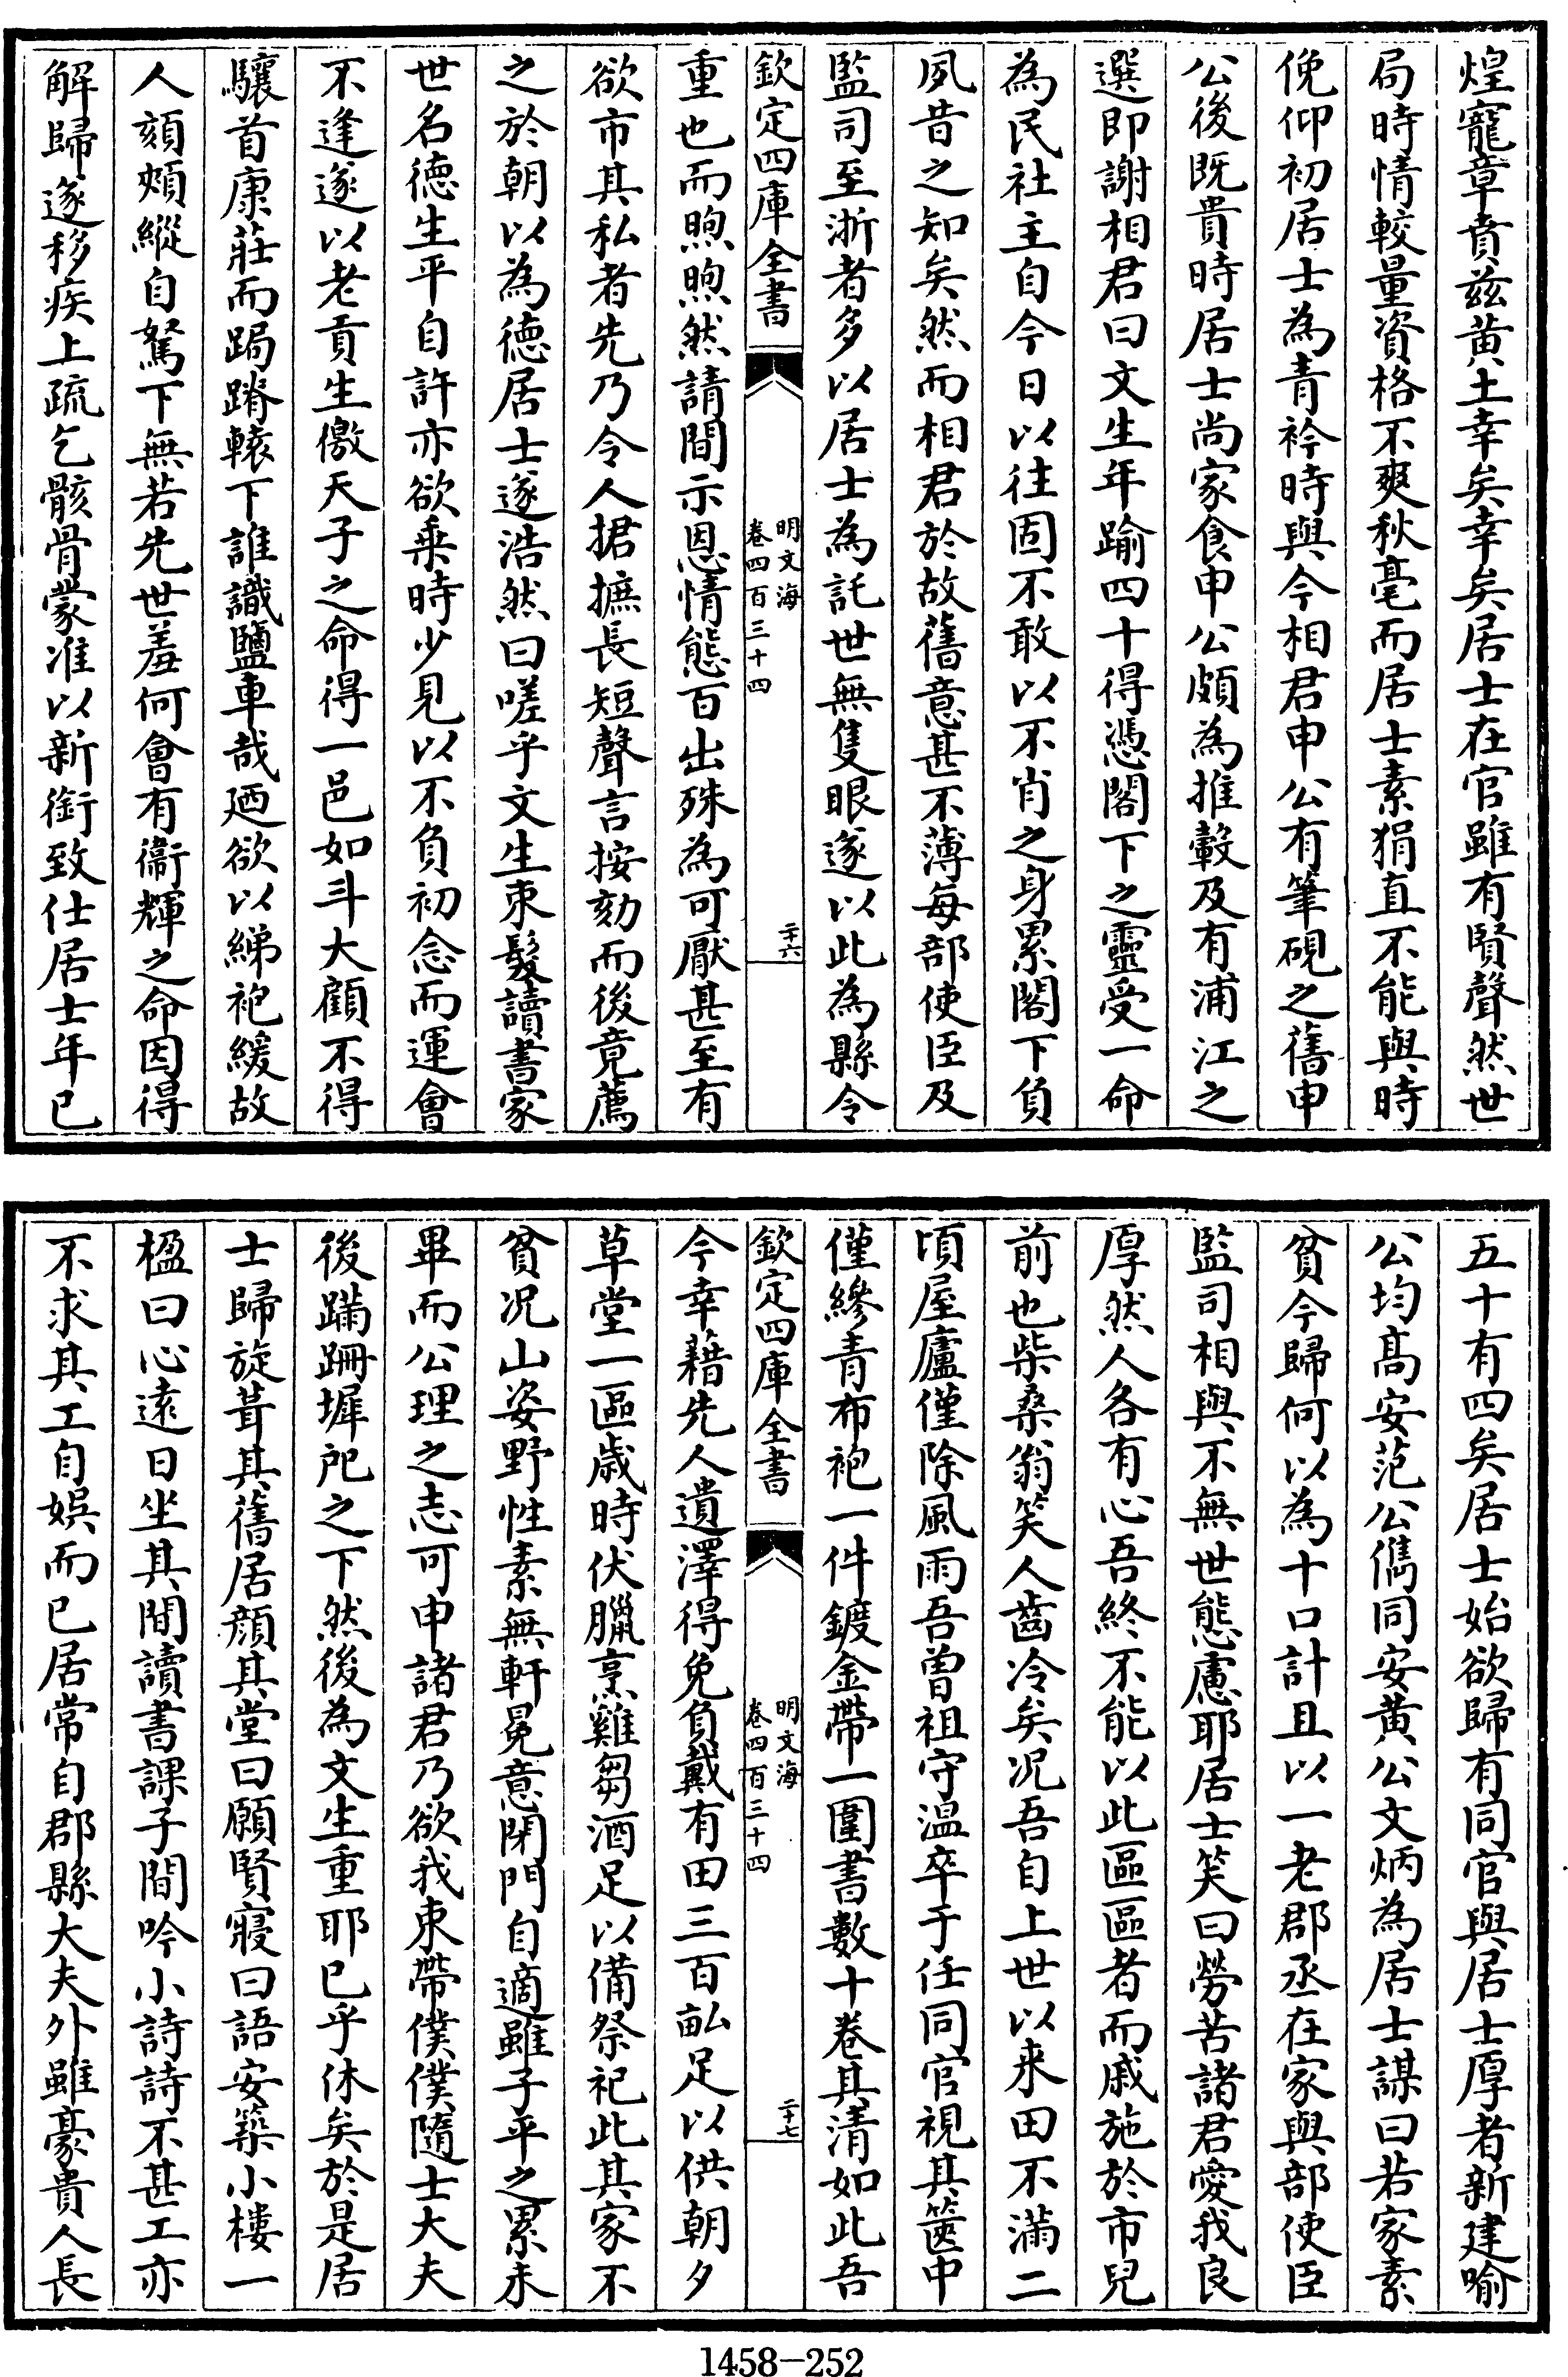 煌寵章賁兹黄土幸矣幸矣居士在官雖有賢聲然世
局時情較量資格不爽秋毫而居士素狷直不能與時
俛仰初居士為青衿時與今相君申公有筆硯之舊申
公後既貴時居士尚家食申公頗為推轂及有浦江之
選即謝相君曰文生年踰四十得憑閣下之靈受一命
為民社主自今日以往固不敢以不肖之身累閣下負
夙昔之知矣然而相君於故舊意甚不薄每部使臣及
監司至浙者多以居士為託世無隻眼遂以此為縣令
欽定四庫全書
明文海
卷四百三十四
二十六
重也而煦煦然請間示恩情態百出殊為可厭甚至有
欲市其私者先乃令人捃摭長短聲言按劾而後竟薦
之於朝以為德居士遂浩然曰嗟乎文生束髮讀書家
世名德生平自許亦欲乗時少見以不負初念而運會
不逢遂以老貢生儌天子之命得一邑如斗大顧不得
驤首康莊而跼蹐轅下誰識鹽車哉廼欲以綈袍緩故
人頦頰縱自駑下無若先世羞何會有衞輝之命因得
解歸遂移疾上疏乞骸骨蒙准以新銜致仕居士年已
五十有四矣居士始欲歸有同官與居士厚者新建喻
公均髙安范公儁同安黄公文炳為居士謀曰若家素
貧今歸何以為十口計且以一老郡丞在家與部使臣
監司相與不無世態慮耶居士笑曰勞苦諸君愛我良
厚然人各有心吾終不能以此區區者而戚施於市兒
前也柴桑翁笑人齒冷矣况吾自上世以来田不滿二
頃屋廬僅除風雨吾曽祖守温卒于任同官視其篋中
僅縿青布袍一件鍍金帶一圍書數十巻其清如此吾
欽定四庫全書
明文海
卷四百三十四
二十七
今幸藉先人遺澤得免負戴有田三百畆足以供朝夕
草堂一區歳時伏臘烹雞芻酒足以備祭祀此其家不
貧况山姿野性素無軒冕意閉門自適雖子平之累未
畢而公理之志可申諸君乃欲我束帶僕僕隨士大夫
後蹣跚墀戺之下然後為文生重耶已乎休矣於是居
士歸旋葺其舊居顔其堂曰願賢寢曰語安築小樓一
楹曰心遠日坐其間讀書課子間吟小詩詩不甚工亦
不求其工自娯而已居常自郡縣大夫外雖豪貴人長
1458-252